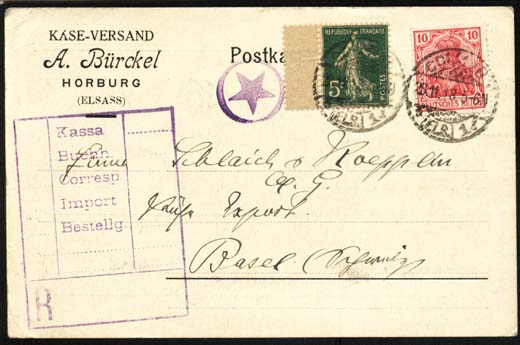 KÄSE-VERSAND
A. Bürckel
HORBURG
(ELSASS)
Postka
RÉPUBLIQUE FRANÇAISE
5c
POSTES
10 10
DEUTSCHES
(ELS)
(ELS)
Kassa
Buchh.
Corresp.
Import
Bestellg.
R
Firma Schlaich & Koepplin
A. G.
Käse Export.
Basel Schweiz